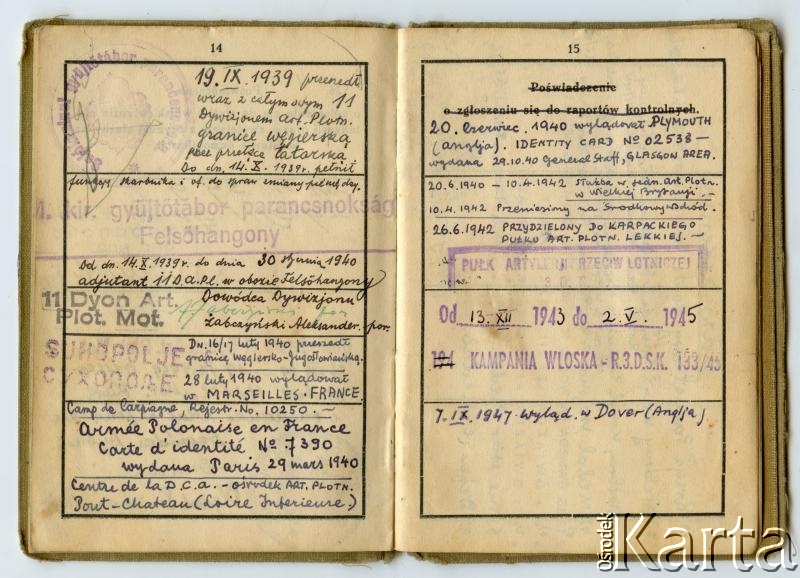 14
19.IX.1939 przeszedł
wraz z całym swym 11
Dywizjonem Art. Plotn.
granicę węgierską
przez przełęcz tatarską
Do dn. 14.X.1939r. pełnił
funkcję skarbnika i of. do spraw zmiany
M. kir. gyűjtőtábor parancsnokság
Felsőhangony
Od dn. 14.X.1939r. do dnia 30 stycznia 1940
adjutant 11 D.A.Pl. w obozie Felsőhangony
11 Dyon Art.
Plot. Mot.
Dowódca Dywizjonu
Żabczyński Aleksander por.
SUHOPOLJE
Dn. 16/17 luty 1940 przeszedł
granicę Węgiersko-Jugosłowiańską.
28 luty 1940 wylądował
w MARSEILLES-FRANCE
Camp de Carpiagne, Rejestr. No. 10250.
Armée Polonaise en France
Carte d'identité No 7390
wydana Paris 29 mars 1940
Centre de la D.C.A. - ośrodek ART. PLOTN.
Pont-Chateau (Loire Inferieure)
15
Poświadczenie
o zgłoszeniu się do raportów kontrolnych.
20. Czerwiec. 1940 wylądował PLYMOUTH
(Anglja). IDENTITY CARD No 02538 —
wydana 29.10.40 General Staff, GLASGOW AREA.
20.6.1940 – 10.4.1942 służba w jedn. Art. Plotn.
w Wielkiej Brytanji. –
10.4.1942 Przeniesiony na Środkowy Wschód.
26.6.1942 PRZYDZIELONY DO KARPACKIEGO
PUŁKU ART. PLOTN. LEKKIEJ. ~
PUŁK ARTYLERJI PRZECIW LOTNICZEJ
Od 13.XII 1943 do 2.V. 1945
194 KAMPANIA WŁOSKA - R.3.D.S.K. 153/45
7.IX.1947 wyląd. w Dover (Anglja)
ośrodek
Karta